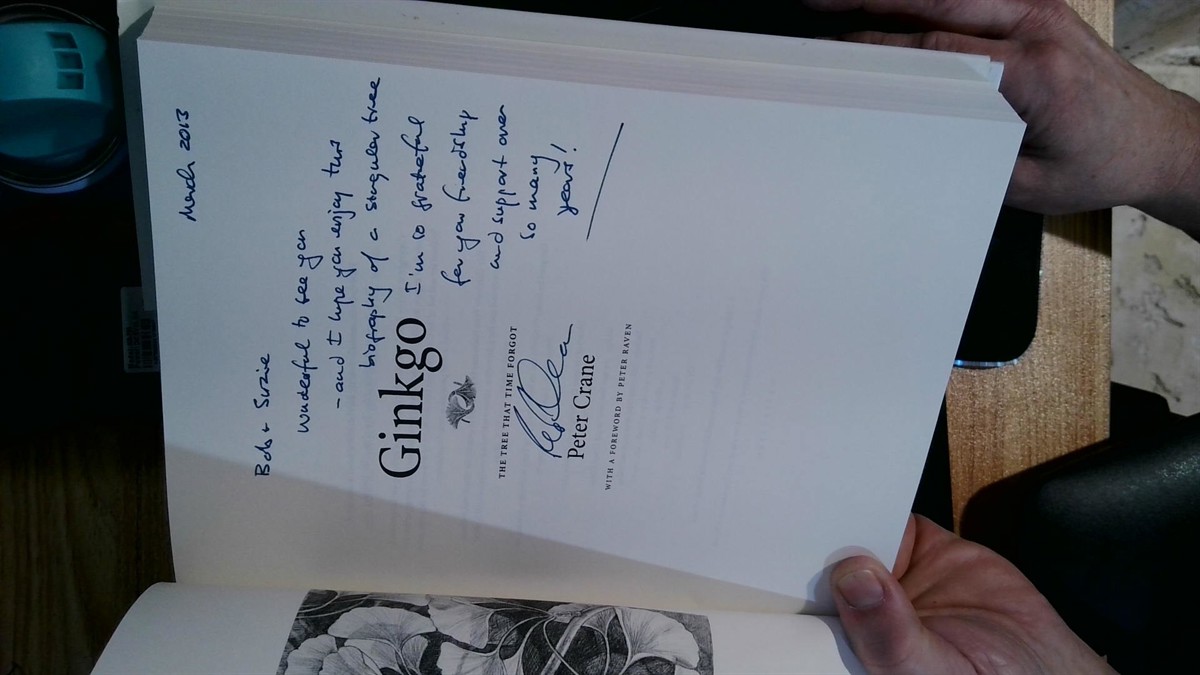 March 2013
Bob + Suzie
Wonderful to see you
- and I hope you enjoy this
biography of a singular tree
Ginkgo
I'm so grateful
for your friendship
and support over
so many
years!
THE TREE THAT TIME FORGOT
Peter Crane
WITH A FOREWORD BY PETER RAVEN